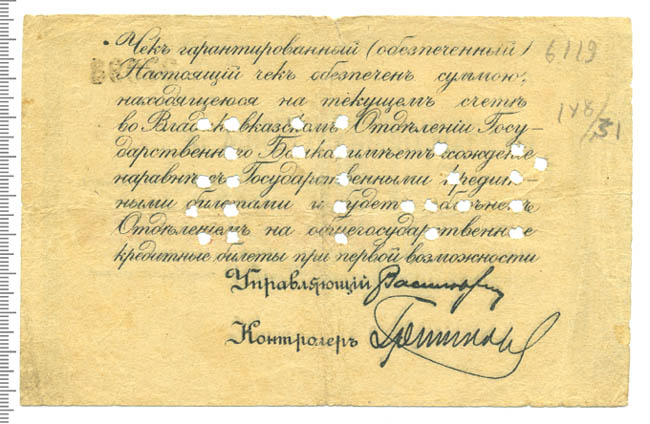 Чекъ гарантированный (обезпеченный)
Настоящій чекъ обезпеченъ суммою,
находящеюся на текущемъ счетѣ
во Владикавказскомъ Отдѣленіи Госу-
дарственнаго Банка имѣетъ хожденіе
наравнѣ съ Государственными кредит-
ными билетами и будетъ обмѣненъ
Отдѣленіемъ на общегосударственные
кредитные билеты при первой возможности
Управляющій
Контролеръ
6119
148/31